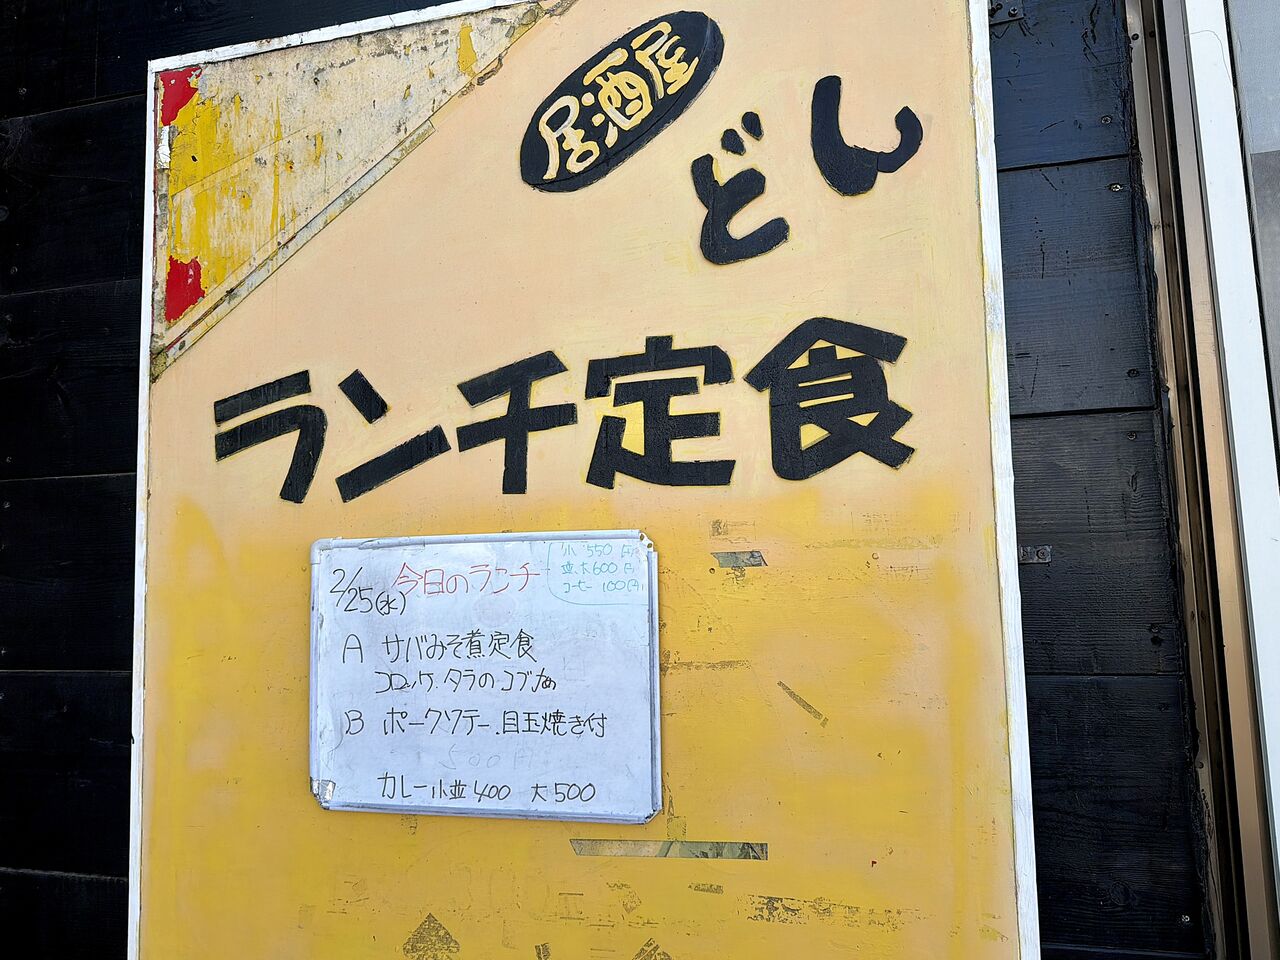 居酒屋
どん
ランチ定食
2/25(水) 今日のランチ
小 550円
並大600円
コーヒー 100円
A サバみそ煮定食
コロッケ.タラのコブ〆
B ポークソテー.目玉焼き付
500円
カレー小並400 大500